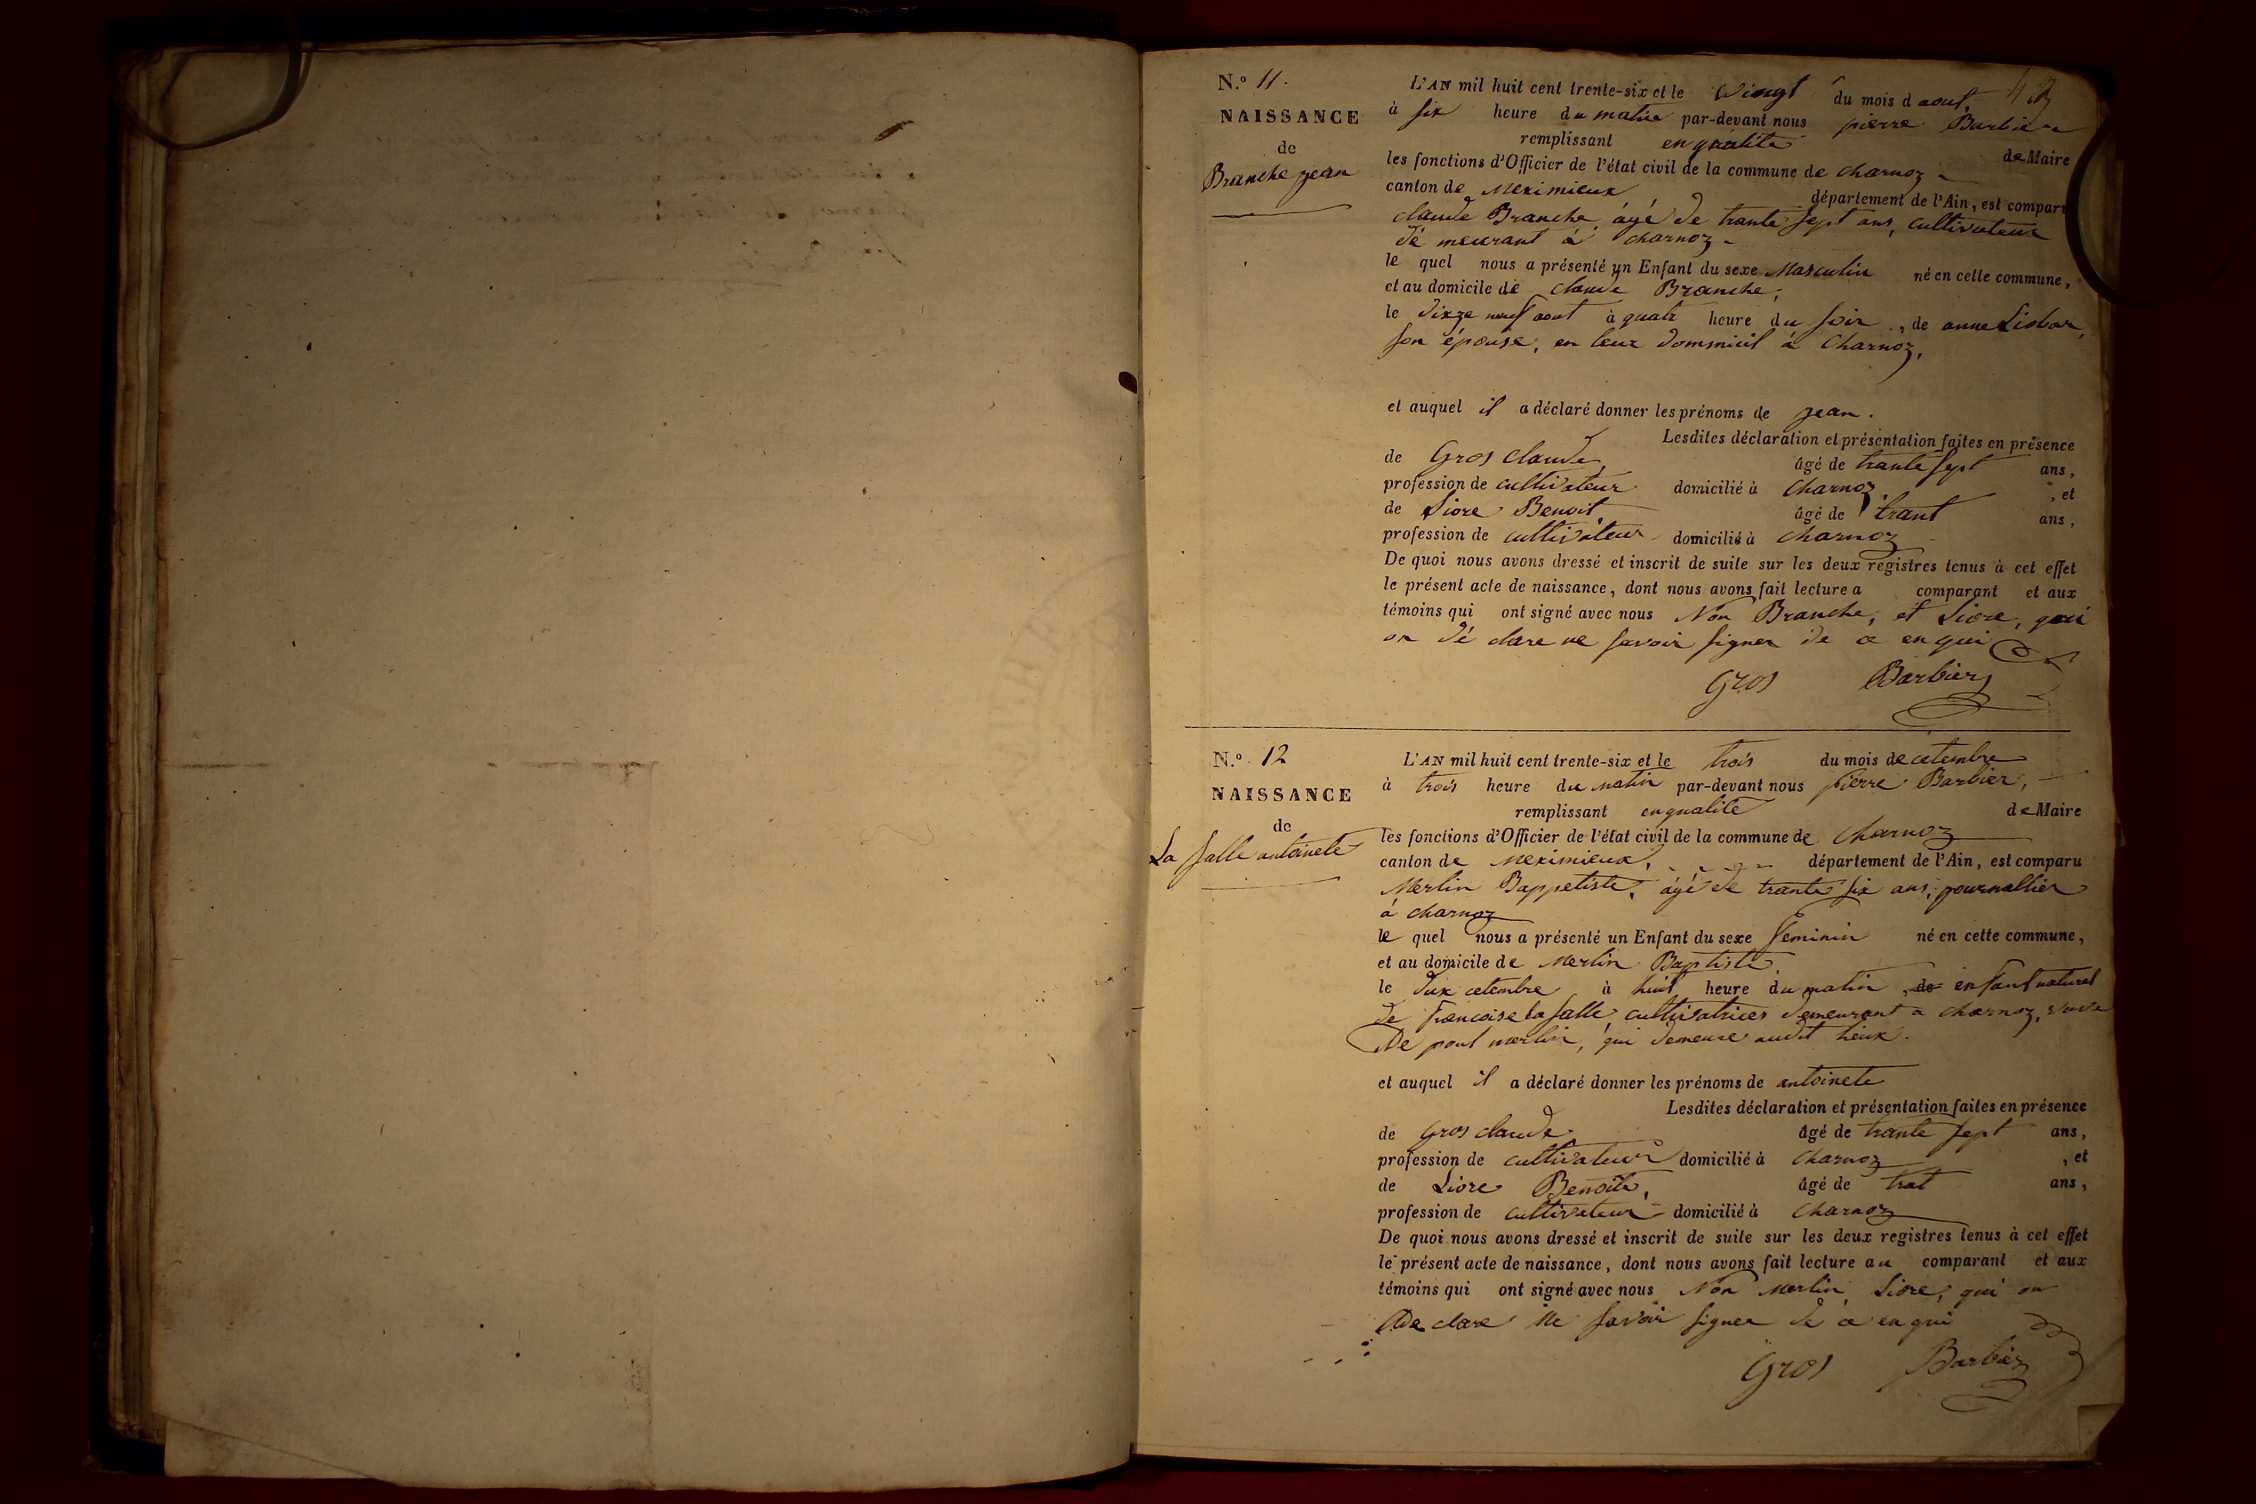 N.º 11.
NAISSANCE
de
Branche jean
L'AN mil huit cent trente-six et le vingt du mois d aout,
à six heure du matin par-devant nous pierre Barbier
remplissant en qualité de Maire
les fonctions d'Officier de l'état civil de la commune de charnoz
canton de Meximieux département de l'Ain, est comparu
claude Branche, âgé de trante sept ans, cultivateur
dé meurant à charnoz
le quel nous a présenté un Enfant du sexe Masculin né en cette commune,
et au domicile de claude Branche,
le dixze neuf aout à quatr heure du soir, de anne Liobar,
son épouse, en leur dommicil à Charnoz,
et auquel il a déclaré donner les prénoms de jean.
Lesdites déclaration et présentation faites en présence
de Gros claude, âgé de trante sept ans,
profession de cultivateur domicilié à Charnoz, et
de Liore Benoit, âgé de trant ans,
profession de cultivateur domicilié à charnoz
De quoi nous avons dressé et inscrit de suite sur les deux registres tenus à cet effet
le présent acte de naissance, dont nous avons fait lecture a comparant et aux
témoins qui ont signé avec nous Non Branche, et Liore, qui
on dé clare ne savoir signer de ce en qui
Gros Barbier
N.º 12
NAISSANCE
de
La salle antoinete
L'AN mil huit cent trente-six et le trois du mois de cetembre
à trois heure du matin par-devant nous pierre Barbier,
remplissant en qualité de Maire
les fonctions d'Officier de l'état civil de la commune de Charnoz
canton de Meximieux, département de l'Ain, est comparu
Merlin Bappetiste, âgé de trante six ans, journallier
à charnoz
le quel nous a présenté un Enfant du sexe feminin né en cette commune,
et au domicile de Merlin Baptiste,
le dux cetembre à huit heure du matin, de enfant naturel
de francoise la salle, cultivatrices demeurant a charnoz, veuve
De poul merlin, qui demeure audit lieux.
et auquel il a déclaré donner les prénoms de antoinete
Lesdites déclaration et présentation faites en présence
de Gros claude âgé de trante sept ans,
profession de cultivateur domicilié à Charnoz, et
de Liore Benoite, âgé de trat ans,
profession de cultivateur domicilié à Charnoz
De quoi nous avons dressé et inscrit de suite sur les deux registres tenus à cet effet
le présent acte de naissance, dont nous avons fait lecture au comparant et aux
témoins qui ont signé avec nous Non Merlin Liore, qui on
De clare ne savoir signer de ce en qui
Gros Barbier